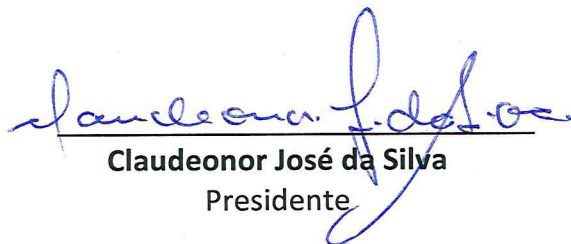 Claudeonor J. da Silva
Claudeonor José da Silva
Presidente